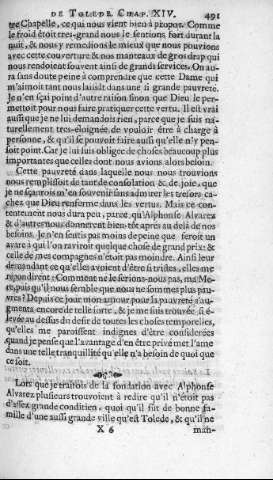 DE TOLEDE CHAP. XIV. 491
tre Chapelle, ce qui nous vient bien à propos. Comme
le froid étoit tres-grand nous le sentions fort durant la
nuit, & nous y remedions le mieux que nous pouvions
avec cette couverture & nos manteaux de gros drap qui
nous rendoient souvent ainsi de grands services. On au-
ra sans doute peine à comprendre que cette Dame qui
m'aimoit tant nous laissât dans une si grande pauvreté.
Je n'en sçai point d'autre raison sinon que Dieu le per-
mettoit pour nous faire pratiquer cette vertu. Il est vrai
aussi que je ne lui demandois rien, parce que je suis na-
turellement tres-éloignée de vouloir être à charge à
personne, & qu'il se pouvoit faire aussi qu'elle n'y pen-
soit point. Car je lui suis obligée de choses beaucoup plus
importantes que celles dont nous avions alors besoin.
Cette pauvreté dans laquelle nous nous trouvions
nous remplissoit de tant de consolation & de joie, que
je ne sçaurois m'en souvenir sans admirer les tresors ca-
chez que Dieu renferme dans les vertus. Mais ce con-
tentement nous dura peu, parce qu'Alphonse Alvarez
& d'autres nous donnerent bien-tôt aprés au delà de nos
besoins. Je n'en sentis pas moins de peine que feroit un
avare à qui l'on raviroit quelque chose de grand prix: &
celle de mes compagnes n'étoit pas moindre. Ainsi leur
demandant ce qu'elles avoient d'être si tristes, elles me
répondirent: Comment ne le serions-nous pas, ma Me-
re, puis qu'il nous semble que nous ne sommes plus pau-
vres? Depuis ce jour mon amour pour la pauvreté s'au-
gmenta encore de telle sorte, & je me suis trouvée si é-
levée au dessus du desir de toutes les choses temporelles,
qu'elles me paroissent indignes d'être considerées
quand je pense que l'avantage d'en être privé met l'ame
dans une telle tranquillité qu'elle n'a besoin de quoi que
ce soit.
Lors que je traitois de la fondation avec Alphonse
Alvarez plusieurs trouvoient à redire qu'il n'étoit pas
d'assez grande condition, quoi qu'il fût de bonne fa-
mille d'une aussi grande ville qu'est Tolede, & qu'il ne
X 6 man-